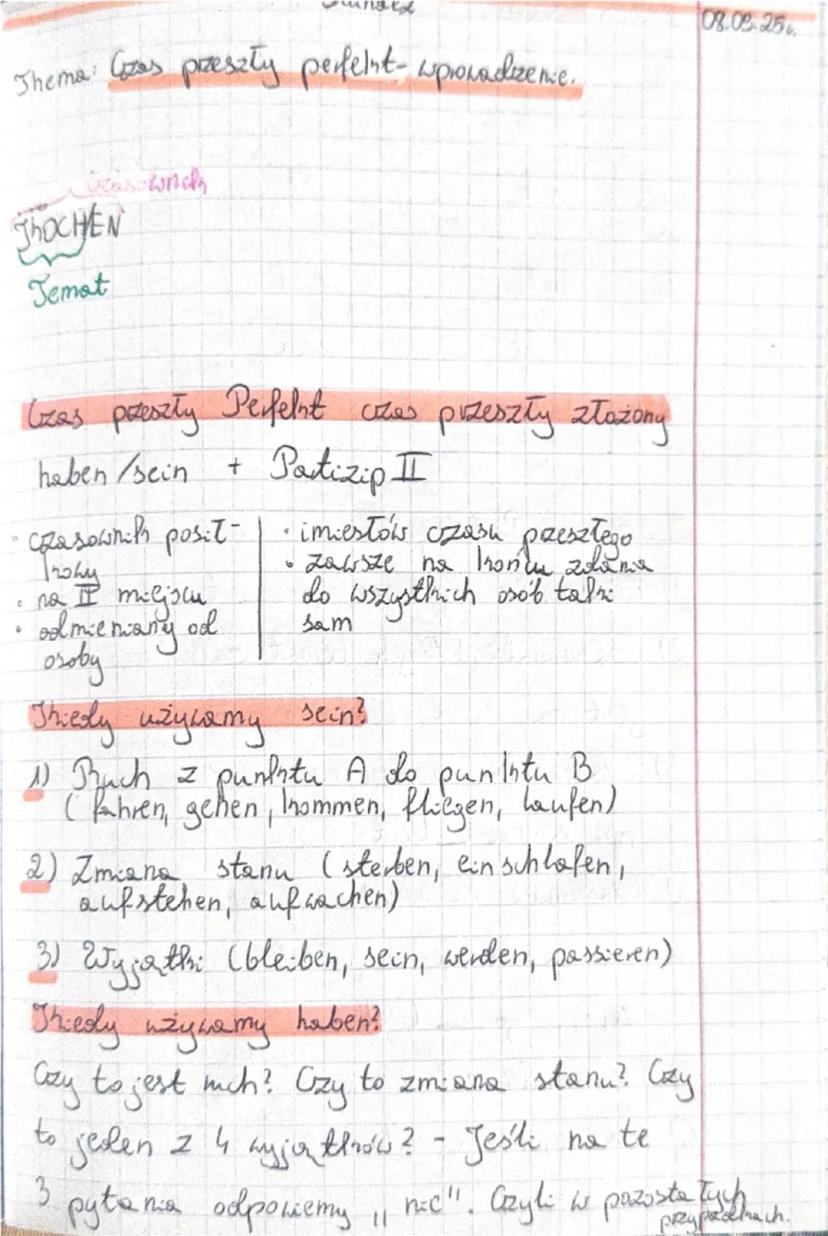 08.09.25r.
Thema: Czas przeszły perfekt - wprowadzenie.
czasownik
KOCH/EN
Temat
Czas przeszły Perfekt czas przeszły złożony
haben/sein + Partizip II
• czasownik posił-
kowy
• na II miejscu
• odmieniany od
osoby
• imiesłów czasu przeszłego
• zawsze na końcu zdania
do wszystkich osób taki
sam
Kiedy używamy sein?
1) Ruch z punktu A do punktu B
(fahren, gehen, kommen, fliegen, laufen)
2) Zmiana stanu (sterben, einschlafen,
aufstehen, aufwachen)
3) Wyjątki (bleiben, sein, werden, passieren)
Kiedy używamy haben?
Czy to jest ruch? Czy to zmiana stanu? Czy
to jeden z 4 wyjątków? - Jeśli na te
3 pytania odpowiemy „nie". Czyli w pozostałych
przypadkach.